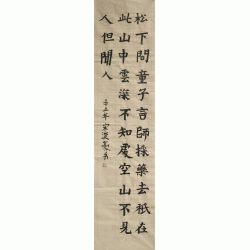 松下問童子言師採藥去祇在
此山中雲深不知處空山不見
人但聞人
辛丑年宋